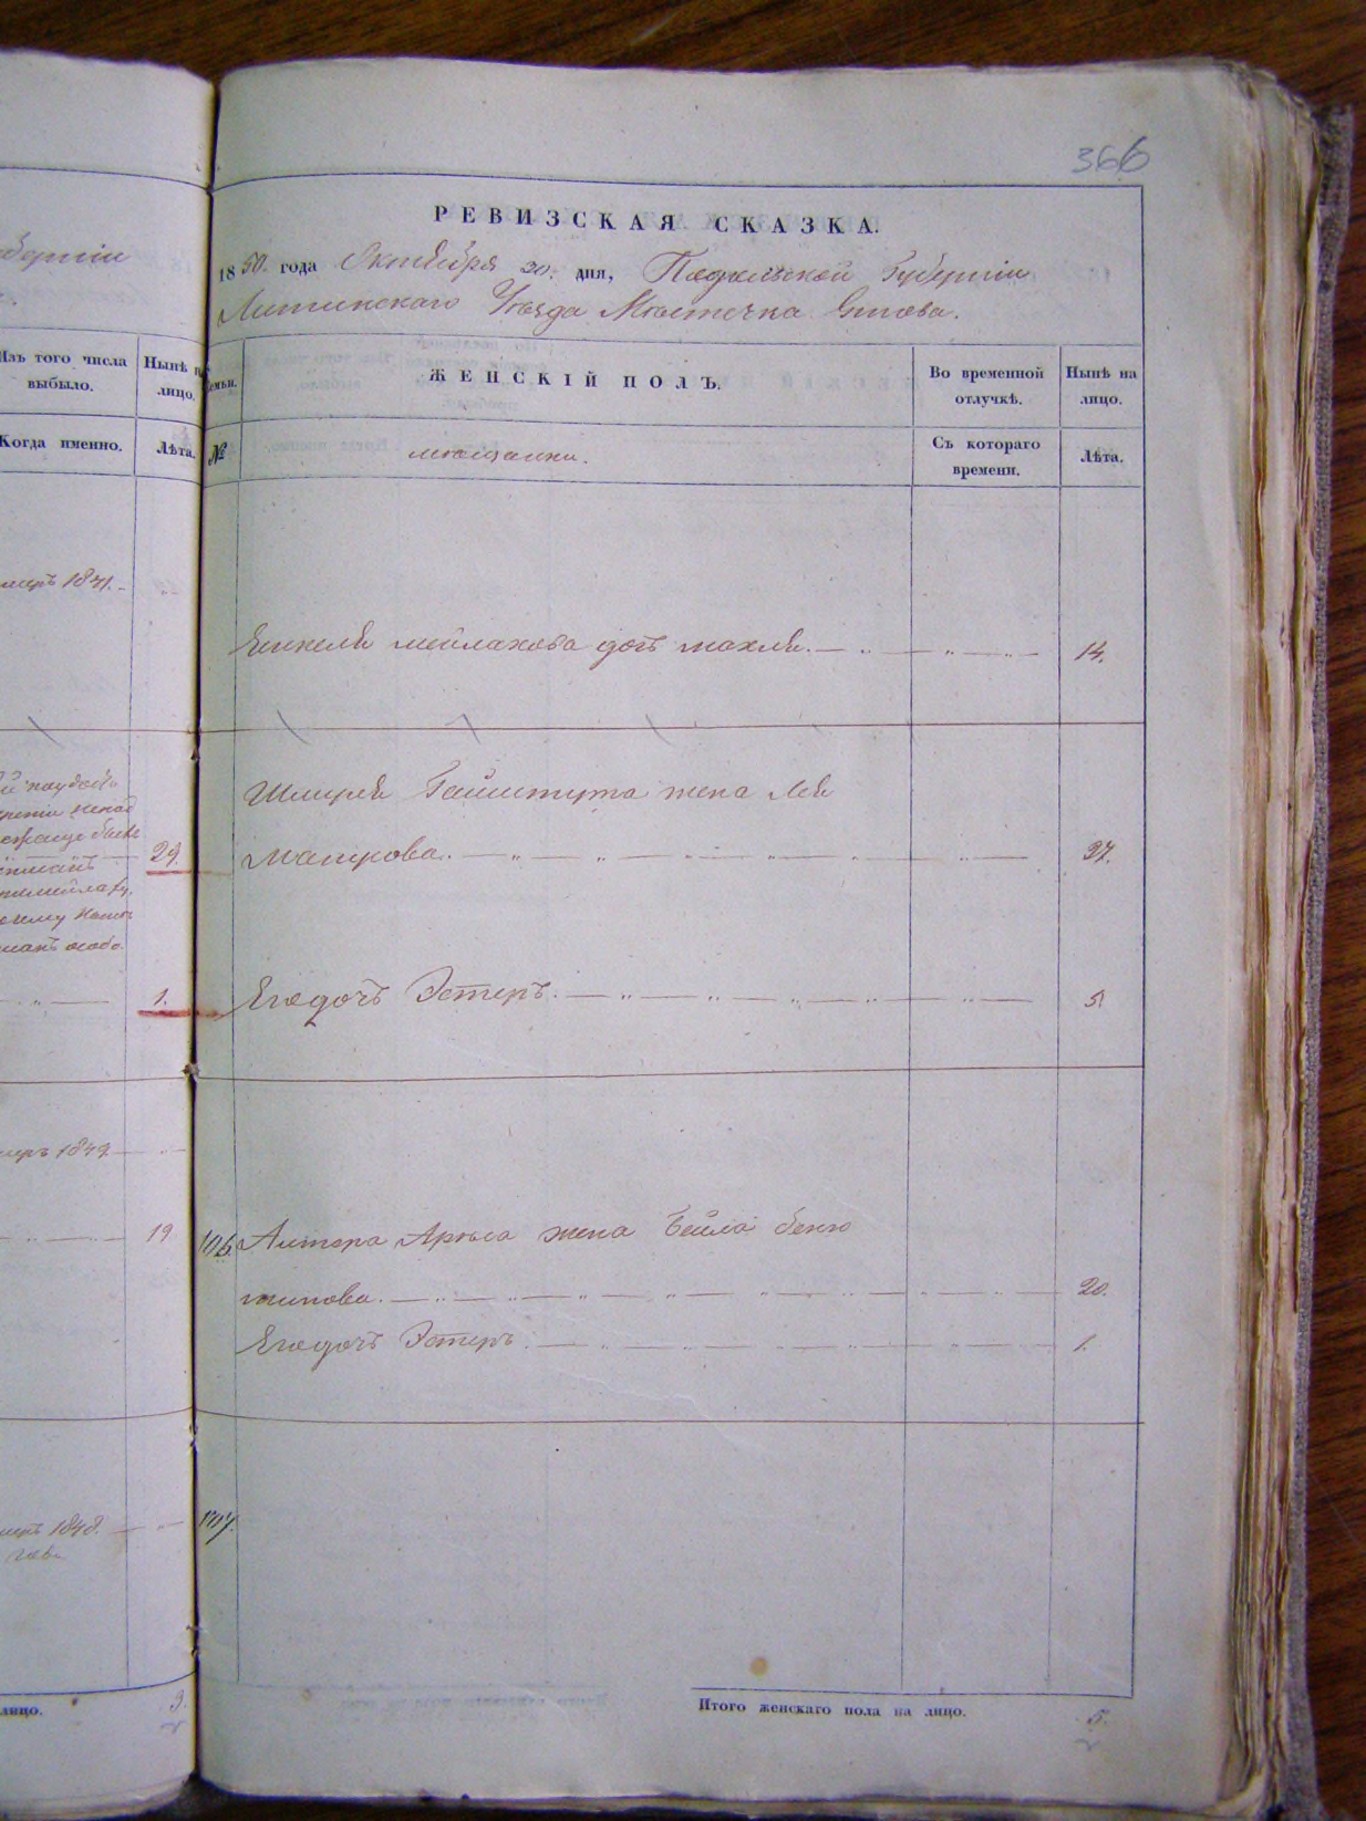 366
бернiи
Изъ того числа
выбыло.
Нынѣ на
лицо.
Когда именно.
Лѣта.
меръ 1841.
29.
1.
меръ 1849
19
меръ 1848.
лицо.
3.
РЕВИЗСКАЯ СКАЗКА.
1850. года Октября 20. дня, Подольской Губернiи
Литинскаго Уѣзда Мѣстечка
Семьи.
ЖЕНСКІЙ ПОЛЪ.
Во временной
отлучкѣ.
Нынѣ на
лицо.
№
мѣщанки.
Съ котораго
времени.
Лѣта.
мейлахова дочь 14.
жена Лея
Маирова. 27.
Его дочь Эстеръ. 5.
106. Алтера жена Бейла Беню
минова. 20.
Его дочь Эстеръ. 1.
107.
Итого женскаго пола на лицо. 5.